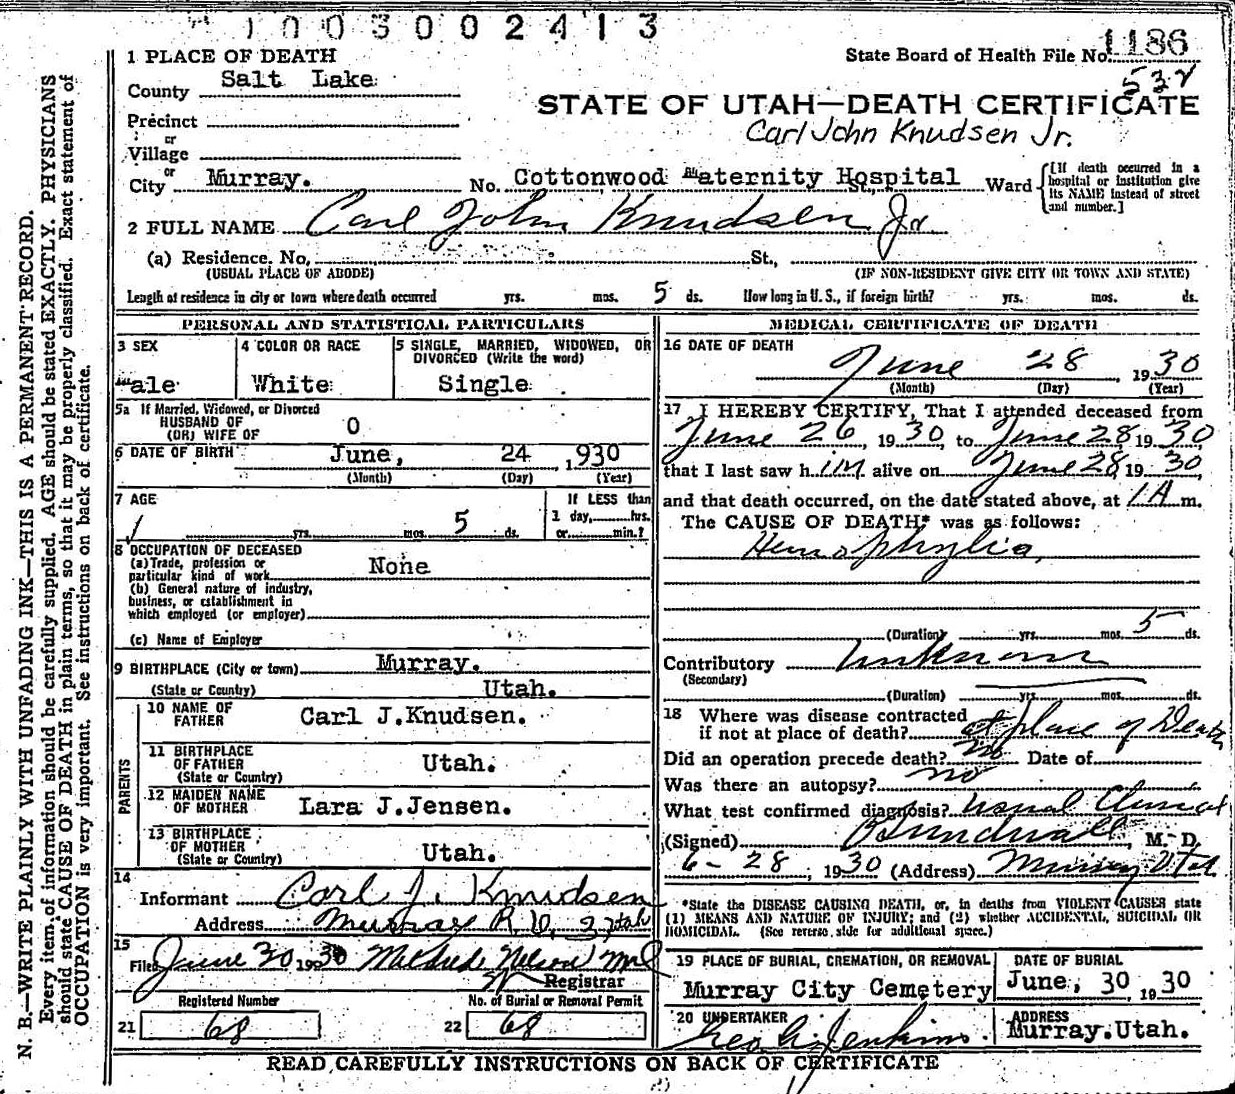 1003002413
1 PLACE OF DEATH
State Board of Health File No. 1186
County Salt Lake
532
STATE OF UTAH—DEATH CERTIFICATE
Precinct
Carl John Knudsen Jr.
or
Village
or
City Murray. No. Cottonwood Maternity Hospital St., Ward
[If death occurred in a hospital or institution give its NAME instead of street and number.]
2 FULL NAME Carl John Knudsen Jr
(a) Residence. No. St.,
(USUAL PLACE OF ABODE) (IF NON-RESIDENT GIVE CITY OR TOWN AND STATE)
Length of residence in city or town where death occurred yrs. mos. 5 ds. How long in U. S., if foreign birth? yrs. mos. ds.
PERSONAL AND STATISTICAL PARTICULARS
3 SEX
Male
4 COLOR OR RACE
White
5 SINGLE, MARRIED, WIDOWED, OR
DIVORCED (Write the word)
Single
5a If Married, Widowed, or Divorced
HUSBAND OF
(OR) WIFE OF 0
6 DATE OF BIRTH June, 24, 1930
(Month) (Day) (Year)
7 AGE
If LESS than
1 day, hrs.
yrs. mos. 5 ds. or min.?
8 OCCUPATION OF DECEASED
(a) Trade, profession or
particular kind of work None
(b) General nature of industry,
business, or establishment in
which employed (or employer)
(c) Name of Employer
9 BIRTHPLACE (City or town) Murray.
(State or Country) Utah.
PARENTS
10 NAME OF
FATHER Carl J.Knudsen.
11 BIRTHPLACE
OF FATHER Utah.
(State or Country)
12 MAIDEN NAME
OF MOTHER Lara J.Jensen.
13 BIRTHPLACE
OF MOTHER
(State or Country) Utah.
14
Informant Carl J. Knudsen
Address Murray R.D. 3, Utah
15
Filed June 30 1930 Mildred Nelson
Registrar
Registered Number No. of Burial or Removal Permit
21 68 22 68
MEDICAL CERTIFICATE OF DEATH
16 DATE OF DEATH
June 28, 1930
(Month) (Day) (Year)
17 I HEREBY CERTIFY, That I attended deceased from
June 26, 1930, to June 28, 1930
that I last saw h im alive on June 28, 1930,
and that death occurred, on the date stated above, at 1 A m.
The CAUSE OF DEATH* was as follows:
Hemophylia,
(Duration) yrs. mos. 5 ds.
Contributory Unknown
(Secondary)
(Duration) yrs. mos. ds.
18 Where was disease contracted
if not at place of death? at place of Death
Did an operation precede death? no Date of
Was there an autopsy? no
What test confirmed diagnosis? Usual Clinical
(Signed) , M. D.
6-28, 1930 (Address) Murray Utah
*State the DISEASE CAUSING DEATH, or, in deaths from VIOLENT CAUSES state
(1) MEANS AND NATURE OF INJURY; and (2) whether ACCIDENTAL, SUICIDAL OR
HOMICIDAL. (See reverse side for additional space.)
19 PLACE OF BURIAL, CREMATION, OR REMOVAL
Murray City Cemetery
DATE OF BURIAL
June, 30, 1930
20 UNDERTAKER
Geo. Jenkins.
ADDRESS
Murray.Utah.
READ CAREFULLY INSTRUCTIONS ON BACK OF CERTIFICATE
N. B.—WRITE PLAINLY WITH UNFADING INK—THIS IS A PERMANENT RECORD.
Every item of information should be carefully supplied. AGE should be stated EXACTLY. PHYSICIANS
should state CAUSE OF DEATH in plain terms, so that it may be properly classified. Exact statement of
OCCUPATION is very important. See instructions on back of certificate.